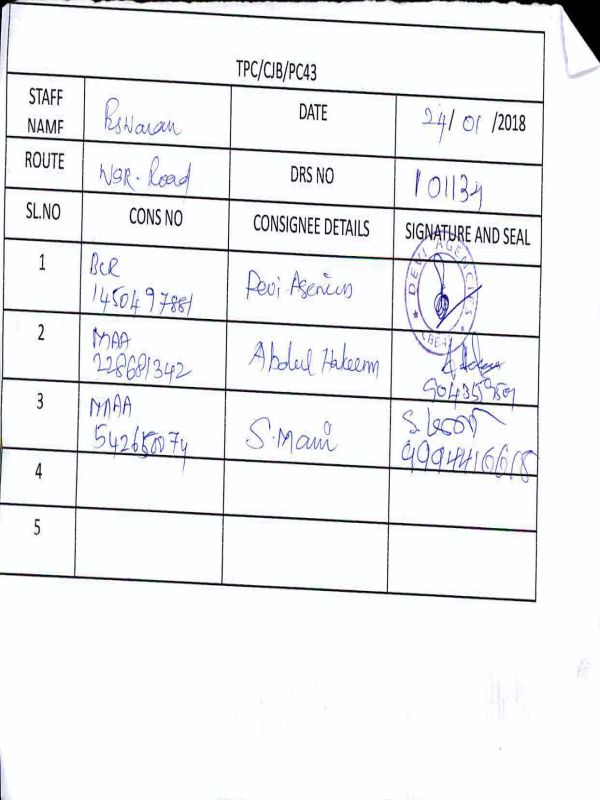 TPC/CJB/PC43
STAFF NAME
DATE 24/01/2018
ROUTE NSR. Road DRS NO 101134
SL.NO CONS NO CONSIGNEE DETAILS SIGNATURE AND SEAL
1 BLR 1450497881 Devi Agencies DEVI AGENCIES CBE-4
2 MAA 228681342 Abdul Hakeem
3 MAA 542658074 S.Mani 9994416618
4
5